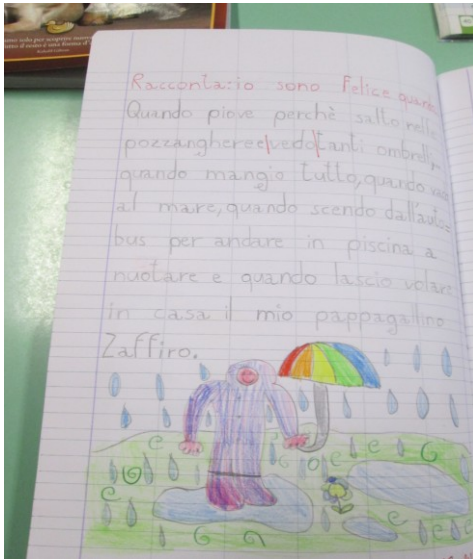 Racconta: io sono felice quando
Quando piove perchè salto nelle
pozzanghere e vedo tanti ombrelli,
quando mangio tutto, quando vado
al mare, quando scendo dall'auto=
bus per andare in piscina a
nuotare e quando lascio volare
in casa il mio pappagallino
Zaffiro.